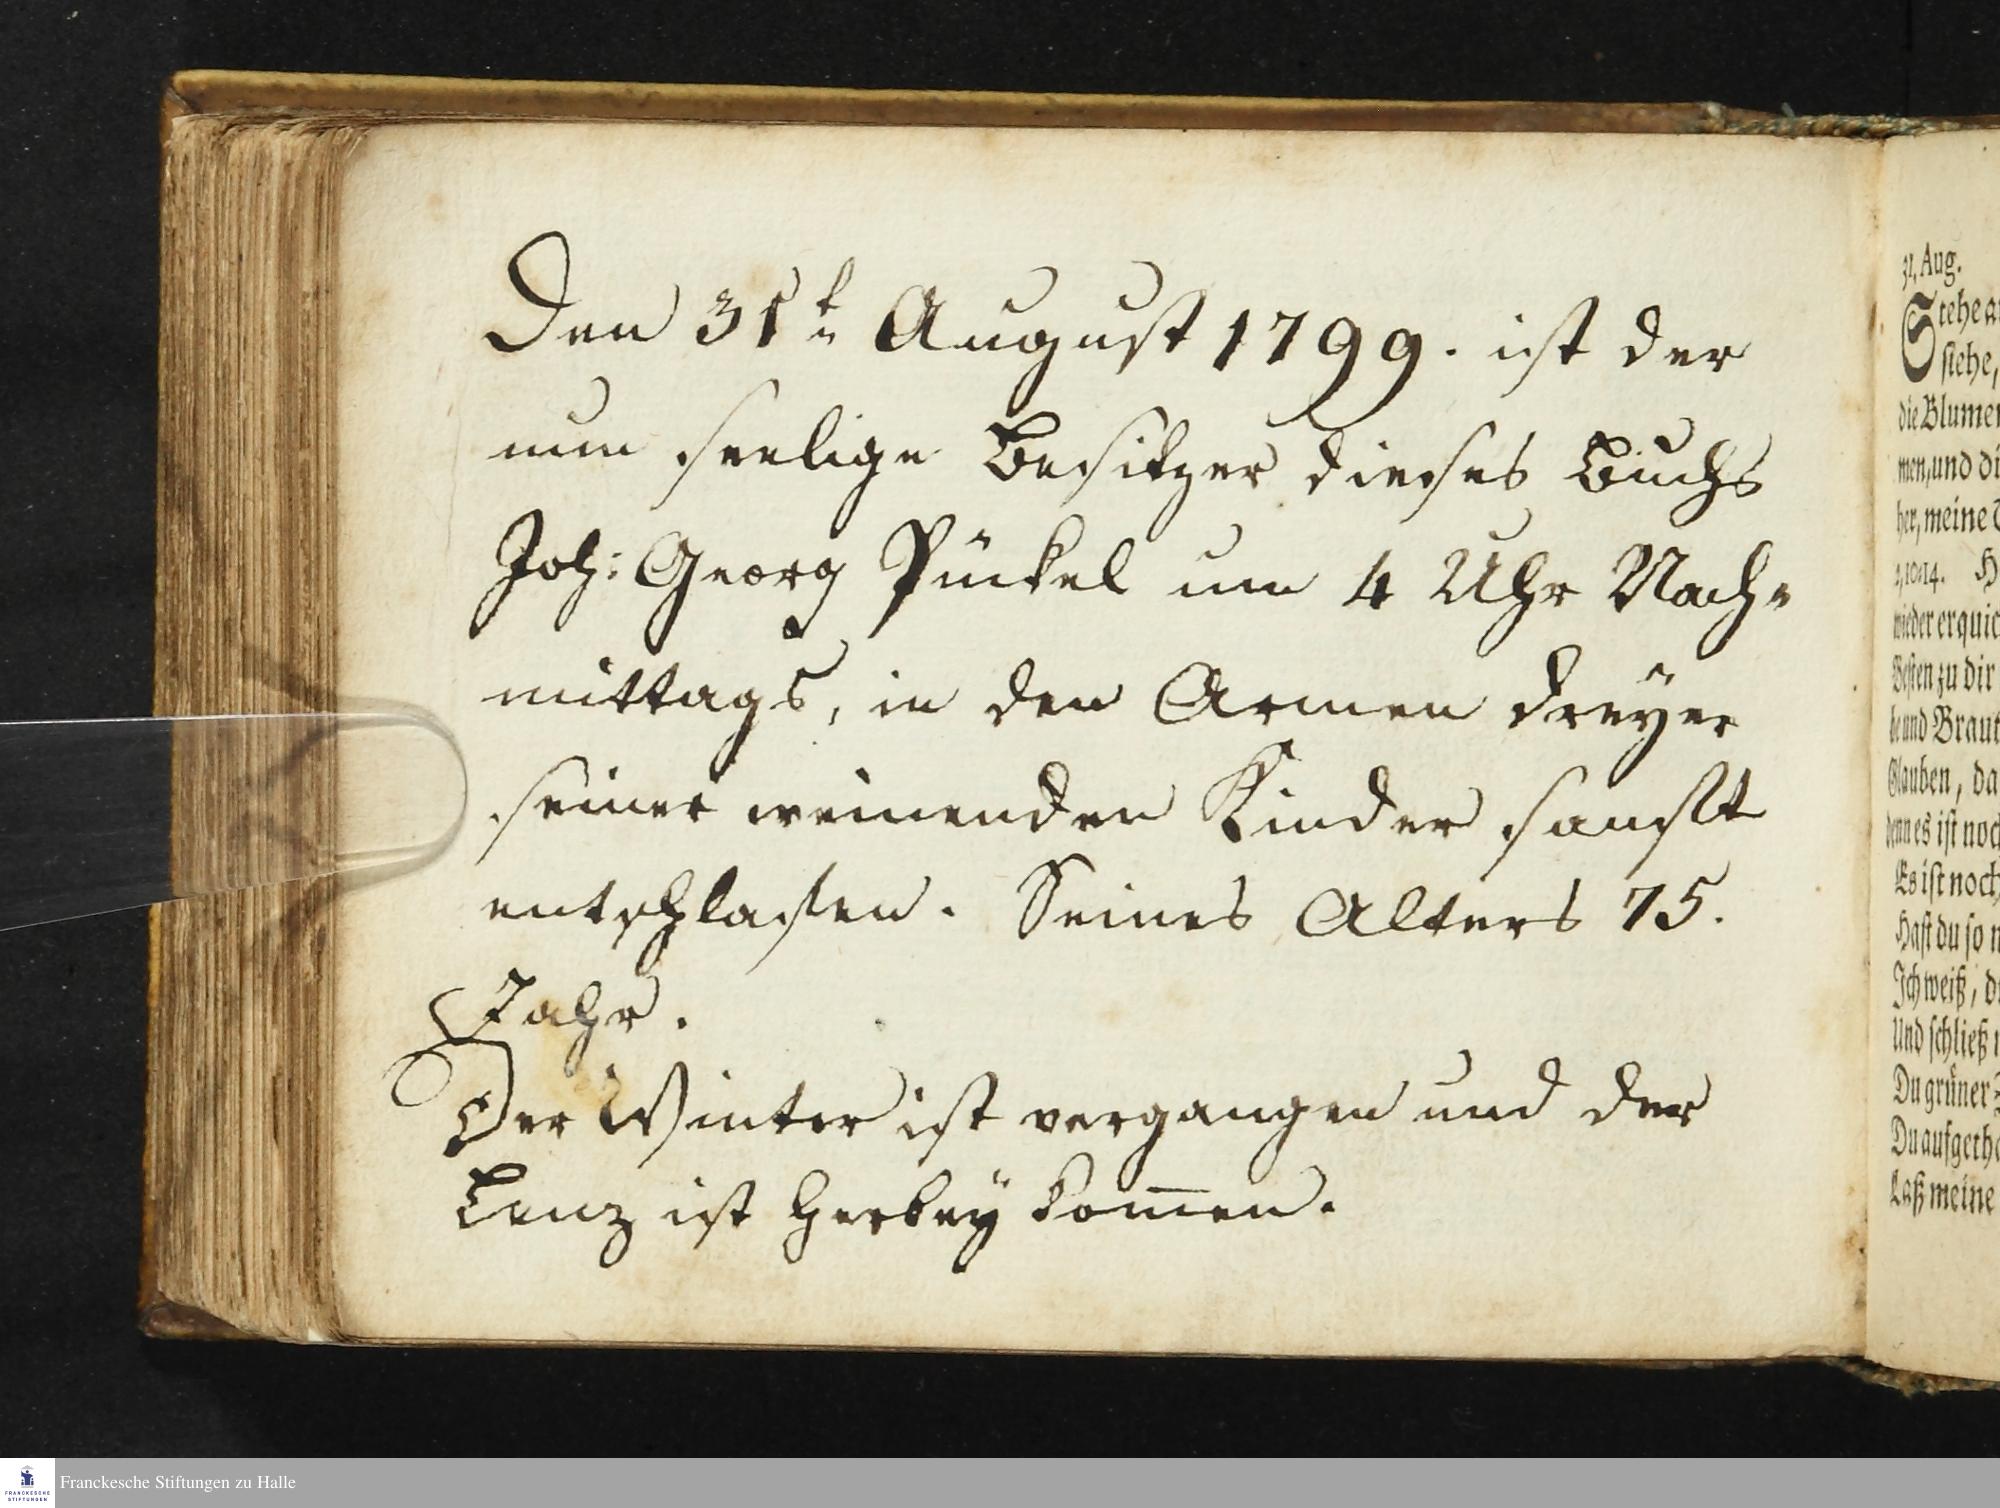 Den 31t. August 1799. ist der
nun seelige Besitzer dieses Buchs
Joh: Georg Pückel um 4 Uhr Nach=
mittags, in den Armen dreÿer
seiner weinenden Kinder sanft
entschlafen. Seines Alters 75.
Jahr.
Der Winter ist vergangen und der
Lenz ist herbeÿ kom̅en.
31. Aug.
Stehe
siehe,
die Blumen
men, und
her, meine
2, 10-14.
wieder erquic
Besten zu dir
be und Braut
Glauben, da
denn es ist noch
Es ist noch
Hast du so
Ich weiß, d
Und schließ
Du grüner
Du aufgeth
Laß meine
Franckesche Stiftungen zu Halle
FRANCKESCHE
STIFTUNGEN